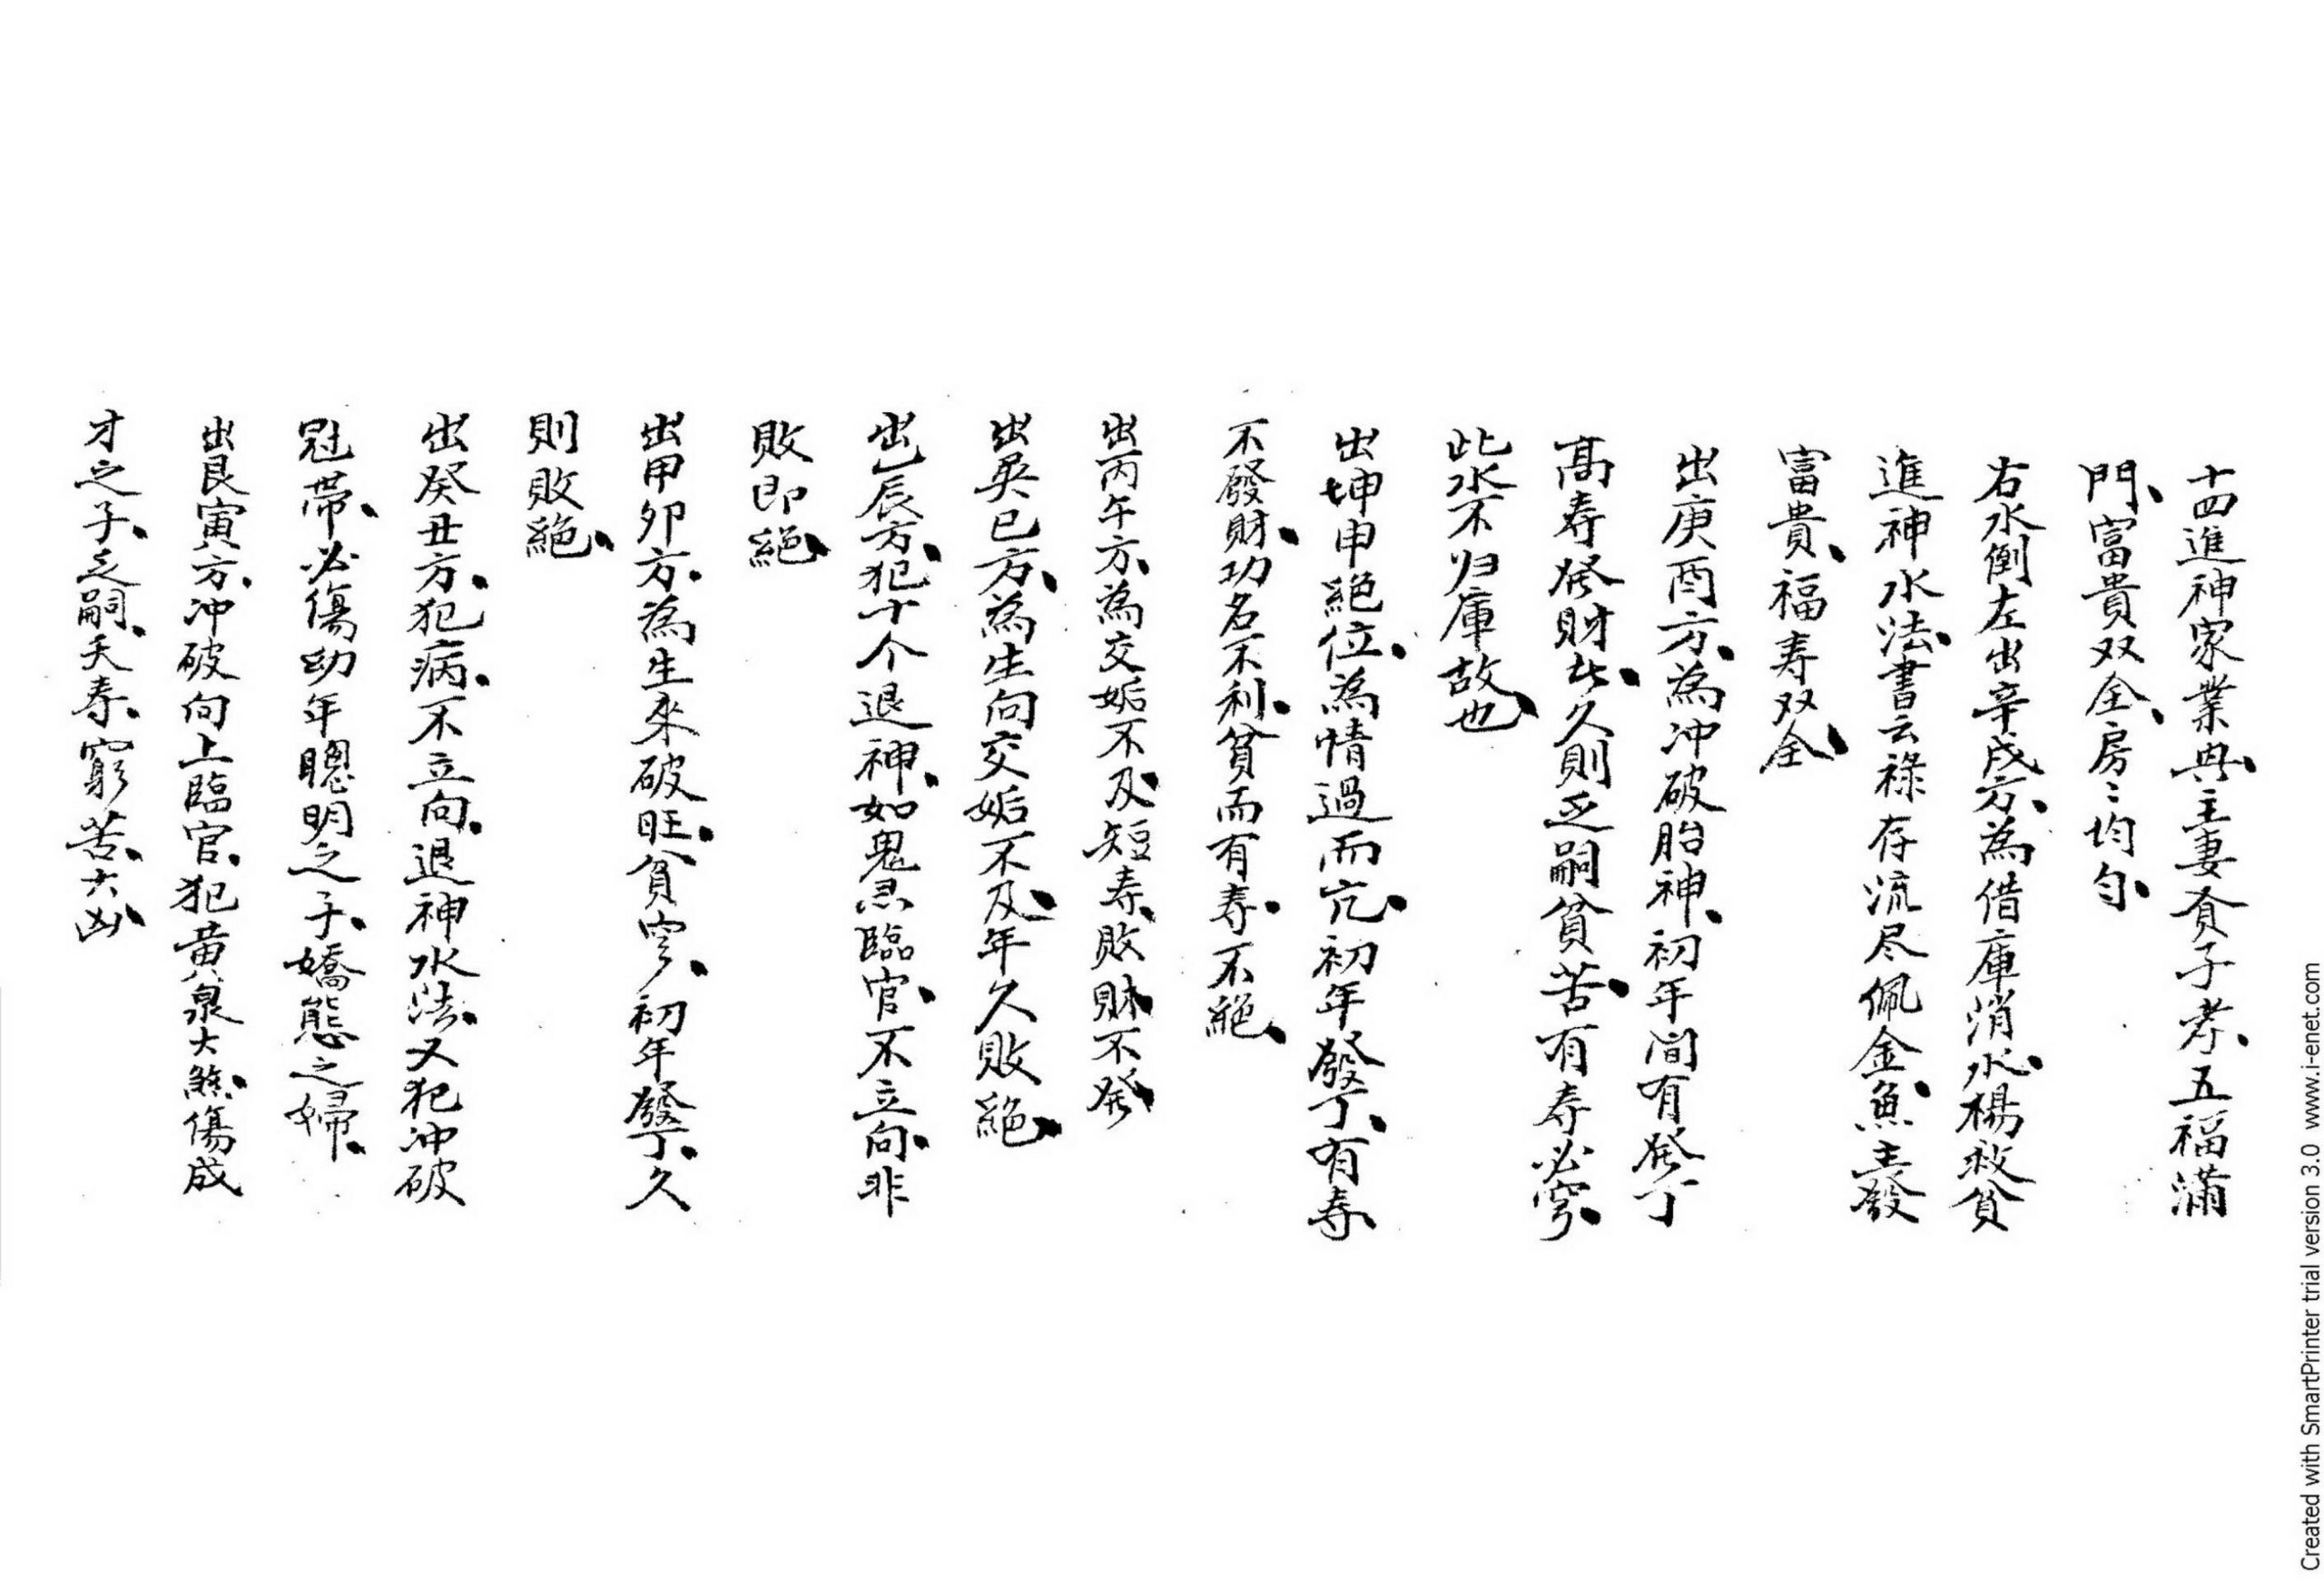 十四進神家業興、主妻賢子孝、五福滿
門、富貴双全、房〻均勻、
右水倒左出辛戌方、為借庫消水、楊救貧
進神水法、書云祿存流尽佩金魚、主發
富貴、福寿双全、
出庚酉方、為冲破胎神、初年間有発丁
高寿発財者、久則乏嗣貧苦、有寿必窮、
此水不归庫故也、
出坤申絕位、為情過而亢、初年發丁、有寿、
不發財、功名不利、貧而有寿、不絕、
出丙午方、為交姤不及、短寿、敗財、不発、
出巽巳方、為生向交姤不及、年久敗絕、
出乙辰方、犯十个退神、如鬼灵臨官、不立向、非
敗即絕、
出甲卯方、為生來破旺、貧窮、初年發丁、久
則敗絕、
出癸丑方、犯病、不立向、退神水法、又犯冲破
冠帶、必傷幼年聰明之子、嬌態之婦、
出艮寅方、冲破向上臨官、犯黃泉大煞、傷成
才之子、乏嗣、夭寿、窮苦、大凶、
Created with SmartPrinter trial version 3.0 www.i-enet.com